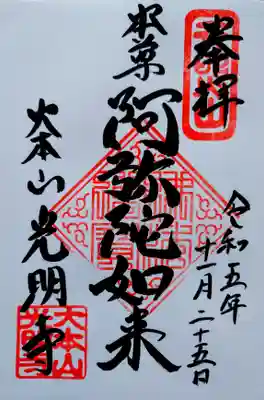 奉拝
令和五年
十一月二十五日
阿弥陀如来
大本山光明寺
大本山